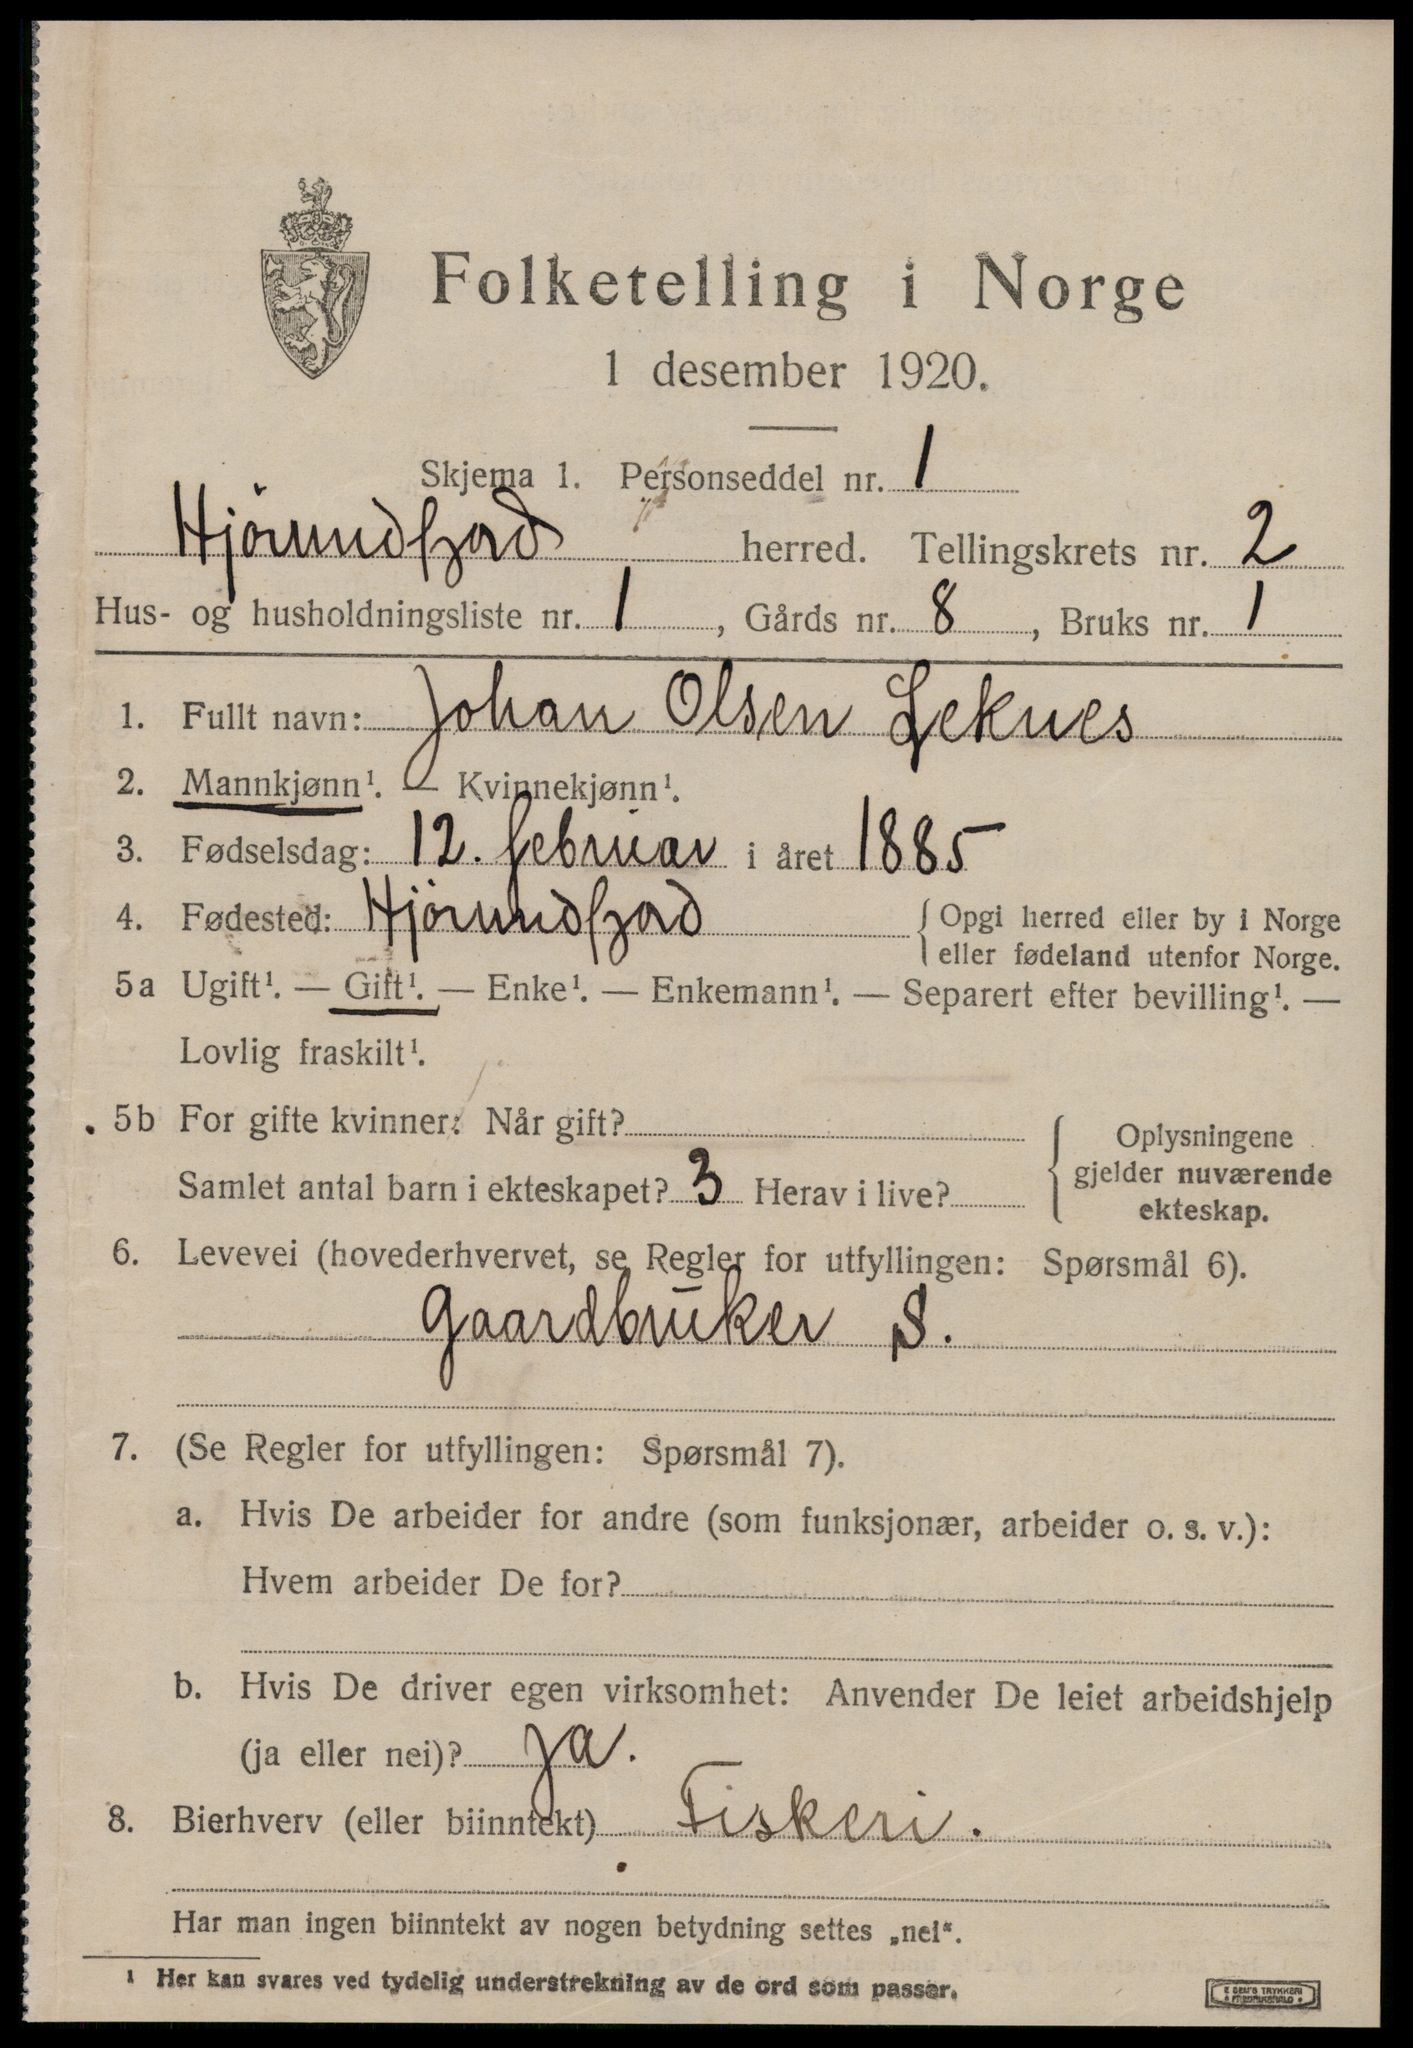 Folketelling i Norge
1 desember 1920.
Skjema 1. Personseddel nr. 1
Hjörundfjord herred. Tellingskrets nr. 2
Hus- og husholdningsliste nr. 1, Gårds nr. 8, Bruks nr. 1
1. Fullt navn: Johan Olsen Leknes
2. Mannkjønn¹. — Kvinnekjønn¹.
3. Fødselsdag: 12. februar i året 1885
4. Fødested: Hjörundfjord { Opgi herred eller by i Norge
eller fødeland utenfor Norge.
5a Ugift¹. — Gift¹. — Enke¹. — Enkemann¹. — Separert efter bevilling¹. —
Lovlig fraskilt¹.
5b For gifte kvinner: Når gift?
Samlet antal barn i ekteskapet? 3 Herav i live?
{ Oplysningene
gjelder nuværende
ekteskap.
6. Levevei (hovederhvervet, se Regler for utfyllingen: Spørsmål 6).
Gaardbruker S.
7. (Se Regler for utfyllingen: Spørsmål 7).
a. Hvis De arbeider for andre (som funksjonær, arbeider o. s. v.):
Hvem arbeider De for?
b. Hvis De driver egen virksomhet: Anvender De leiet arbeidshjelp
(ja eller nei)? Ja.
8. Bierhverv (eller biinntekt) Fiskeri.
Har man ingen biinntekt av nogen betydning settes „nei“.
¹ Her kan svares ved tydelig understrekning av de ord som passer.
E SEM'S TRYKKERI
FREDRIKSHALD